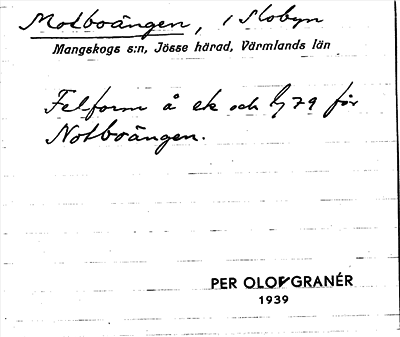 Motboängen, i Slobyn
Mangskogs s:n, Jösse härad, Värmlands län
Felform å ek och 79 för
Notboängen.
PER OLOF GRANÉR
1939